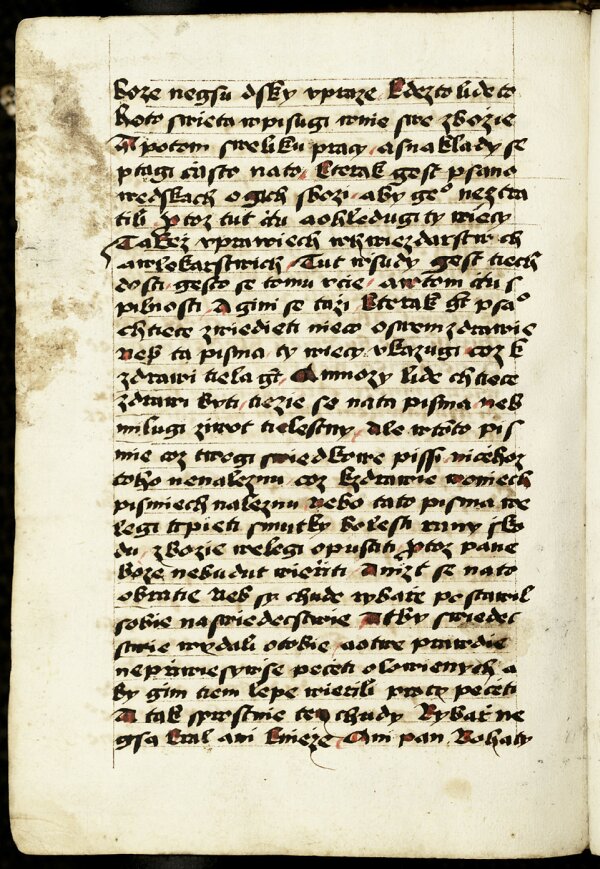 boze negsu dsky vpraze Kdezto lide to
hoto swieta wpisugi wnie swe zbozie
A potom sweliku pracy a snaklady se
ptagi casto nato kterak gest psano
wedskach o gich sbozi aby ge° neztra
tili Protoz tut ctu a ohledugi ty wiecy
Takez vprawiech whwiezdarstwich
a wlekarstwich Tut wsudy gest tiech
dosti gesto se tomu vcie a wtom ctu s
pilnosti A gini se tazi kterak gt psa°
chtiece zwiedieti nieco o swem zdrawie
neb ta pisma ty wiecy vkazugi coz k
zdrawi tiela gt A mnozy lide chtiece
zdrawi byti tiezie se na ta pisma neb
milugi ziwot tielestny Ale wtoto pis
mie coz twogi swiedkowe pissi nicehoz
toho nenaleznu coz kzdrawie woniech
pismiech naleznu nebo tato pisma we
legi trpieti smutky bolesti rany sko
du zbozie welegi opustiti Protoz pane
boze nebudut wieriti Anizt se nato
obratie neb sy chude rybare postawil
sobie naswiedecstwie Atby swiedec
stwie wydali otobie a otwe prawdie
neprwiesywse peceti olowienych a
by gim tiem lepe wierili procz peceti
A tak sprostnie ten chudy Rybar ne
gsa kral ani knieze Ani pan Bohaty